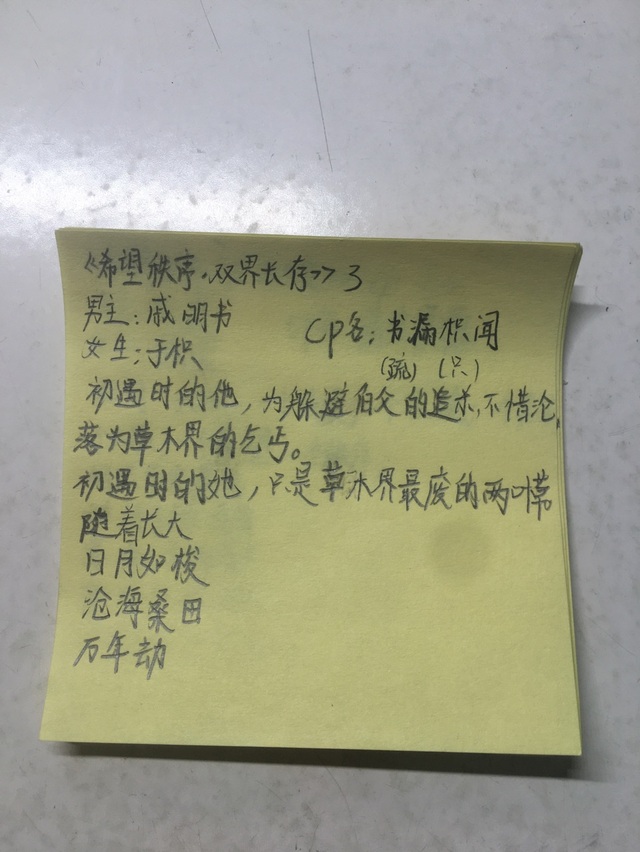 《希望秩序,双界长存》3
男主:戚明书
女生:于枳
cp名:书漏枳闻
(疏)(只)
初遇时的他,为躲避伯父的追杀,不惜沦
落为草木界的乞丐。
初遇时的她,只是草木界最废的两叶草
随着长大
日月如梭
沧海桑田
万年劫